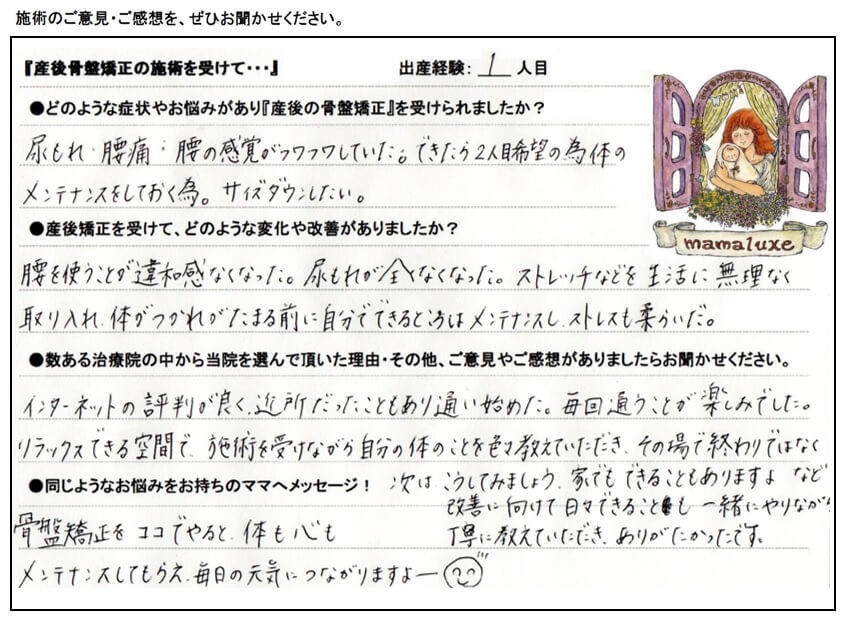 施術のご意見・ご感想を、ぜひお聞かせください。
『産後骨盤矯正の施術を受けて・・・』 出産経験：1人目
●どのような症状やお悩みがあり『産後の骨盤矯正』を受けられましたか？
尿もれ・腰痛・腰の感覚がフワフワしていた。できたら2人目希望の為体の
メンテナンスをしておく為。サイズダウンしたい。
mamaluxe
●産後矯正を受けて、どのような変化や改善がありましたか？
腰を使うことが違和感なくなった。尿もれが全くなくなった。ストレッチなどを生活に無理なく
取り入れ、体がつかれがたまる前に自分でできるところはメンテナンスし、ストレスも柔らいだ。
●数ある治療院の中から当院を選んで頂いた理由・その他、ご意見やご感想がありましたらお聞かせください。
インターネットの評判が良く、近所だったこともあり通い始めた。毎回通うことが楽しみでした。
リラックスできる空間で、施術を受けながら自分の体のことを色々教えていただき、その場で終わりではなく
次は、こうしてみましょう、家でもできることもありますよなど
改善に向けて日々できることも一緒にやりながら
丁寧に教えていただき、ありがたかったです。
●同じようなお悩みをお持ちのママへメッセージ！
骨盤矯正をココでやると、体も心も
メンテナンスしてもらえ、毎日の元気につながりますよー